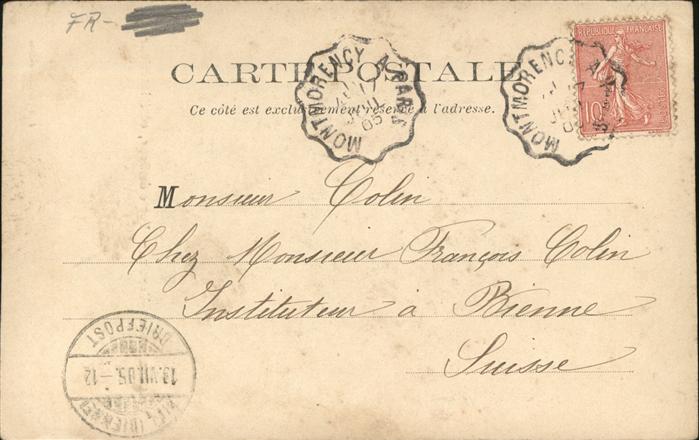 FR-
RÉPUBLIQUE FRANÇAISE
10
MONTMORENCY A PARIS
05
MONTMORENCY A
CARTE POSTALE
Ce côté est exclusivement réservé à l'adresse.
Monsieur Colin
Chez Monsieur François Colin
Instituteur à Bienne
Suisse
BIEL (BIENNE)
13.VII.05.-12
BRIEFPOST